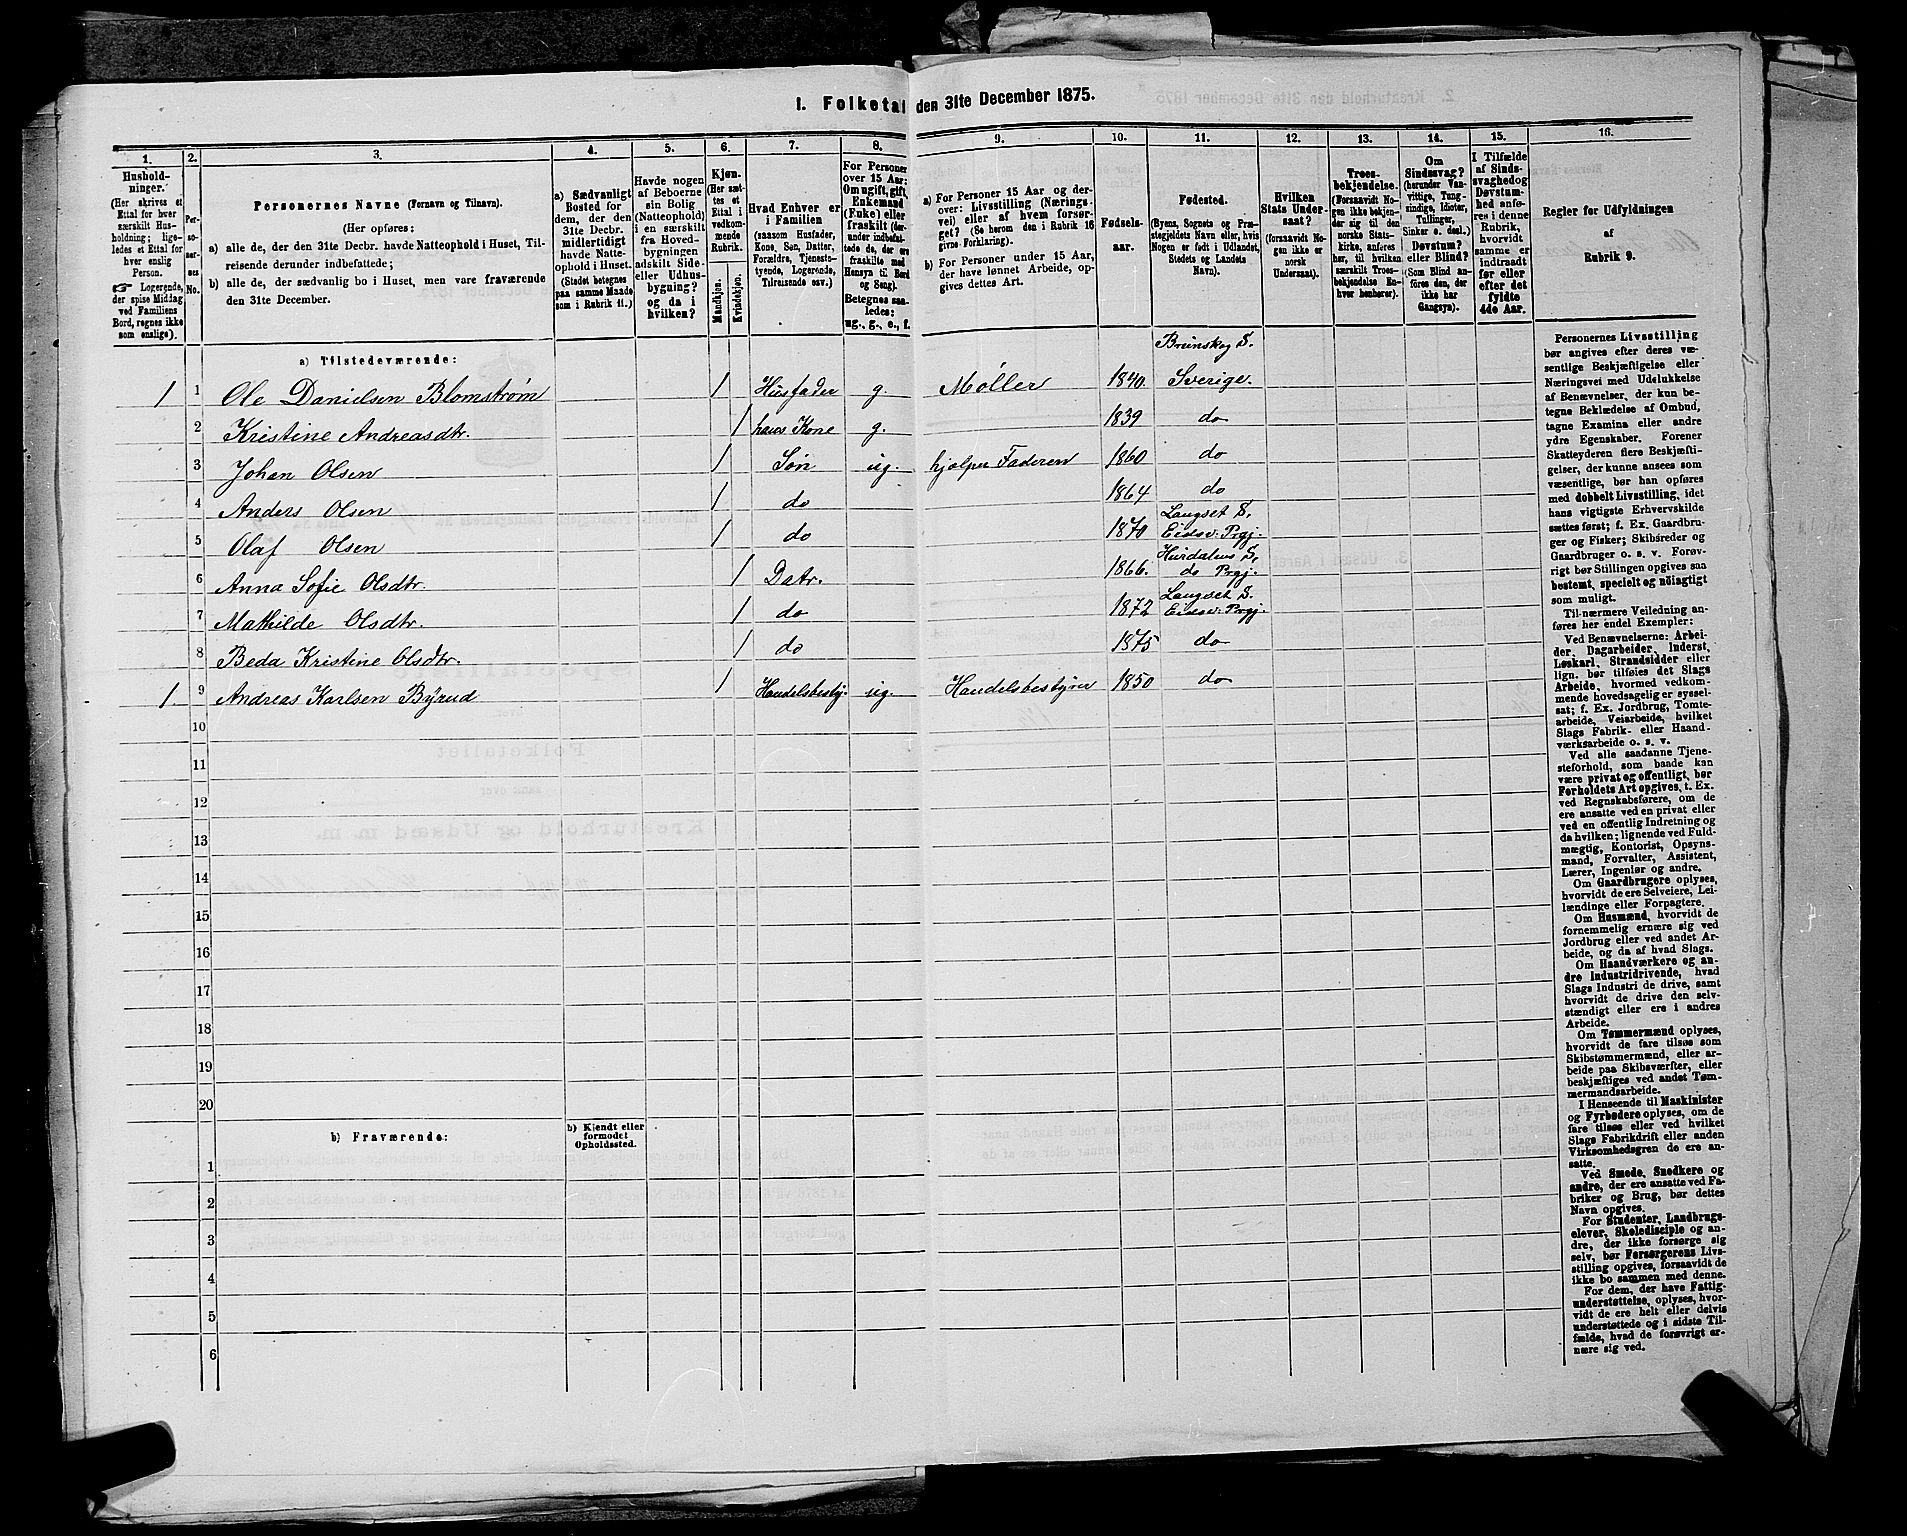 1. Folketal den 31te December 1875.
1.
Hushold-
ninger.
(Her skrives et
Ettal for hver
særskilt Hus-
holdning; lige-
ledes et Ettal for
hver enslig
Person.
☛ Logerende,
der spise Middag
ved Familiens
Bord, regnes ikke
som enslige).
2.
Per-
so-
ner-
nes
No.
3.
Personernes Navne (Fornavn og Tilnavn).
(Her opføres:
a) alle de, der den 31te Decbr. havde Natteophold i Huset, Til-
reisende derunder indbefattede;
b) alle de, der sædvanlig bo i Huset, men vare fraværende
den 31te December.
4.
a) Sædvanligt
Bosted for
dem, der den
31te Decbr.
midlertidigt
havde Natte-
ophold i Huset.
(Stedet betegnes
paa samme Maade
som i Rubrik 11.)
5.
Havde nogen
af Beboerne
sin Bolig
(Natteophold)
i en særskilt
fra Hoved-
bygningen
adskilt Side-
eller Udhus-
bygning?
og da i
hvilken?
6.
Kjøn.
(Her sæt-
tes et
Ettal i
vedkom-
mende
Rubrik.
Mandkjøn.
Kvindekjøn.
7.
Hvad Enhver er
i Familien
(saasom Husfader,
Kone, Søn, Datter,
Forældre, Tjenest-
tyende, Logerende,
Tilreisende osv.)
8.
For Personer
over 15 Aar:
Om ugift, gift,
Enkemand
(Enke) eller
fraskilt (der-
under indbefat-
tede de, der ere
fraskilte med
Hensyn til Bord
og Seng).
Betegnes saa-
ledes:
ug., g., e., f.
9.
a) For Personer 15 Aar og der-
over: Livsstilling (Nærings-
vei) eller af hvem forsør-
get? (Se herom den i Rubrik 16
givne Forklaring).
b) For Personer under 15 Aar,
der have lønnet Arbeide, op-
gives dettes Art.
10.
Fødsels-
aar.
11.
Fødested.
(Byens, Sognets og Præ-
stegjeldets Navn eller, hvis
Nogen er født i Udlandet,
Stedets og Landets
Navn).
12.
Hvilken
Stats Under-
saat?
(forsaavidt No-
gen ikke er
norsk
Undersaat).
13.
Troes-
bekjendelse.
(Forsaavidt No-
gen ikke bekjen-
der sig til den
norske Stats-
kirke, anføres
her, til hvilken
særskilt Troes-
bekjendelse En-
hver henhører).
14.
Om
Sindssvag?
(herunder Van-
vittige, Tung-
sindige, Idioter,
Tullinger,
Sinker o. desl.)
Døvstum?
eller Blind?
(Som Blind an-
føres den, der
ikke har
Gangsyn).
15.
I Tilfælde
af Sinds-
svaghed og
Døvstum-
hed anfø-
res i denne
Rubrik,
hvorvidt
samme er
indtraadt
før eller
efter det
fyldte
4de Aar.
16.
Regler for Udfyldningen
af
Rubrik 9.
a) Tilstedeværende:
1 1 Ole Danielsen Blomstrøm 1 Husfader g. Møller 1840. Brunskog S. Sverige.
2 Kristine Andreasdtr. 1 hans Kone g. 1839 do
3 Johan Olsen 1 Søn ug. hjælper Faderen 1860 do
4 Anders Olsen 1 do 1864 do
5 Olaf Olsen 1 do 1870 Langset S. Eidsv: Prgj.
6 Anna Sofie Olsdtr. 1 Datr. 1866. Hurdalens S. do Prgj.
7 Mathilde Olsdtr. 1 do 1872 Langset S. Eidsv: Prgj.
8 Beda Kristine Olsdtr. 1 do 1875 do
1. 9 Andreas Karlsen Byrud 1 Handelsbesty. ug. Handelsbestyrer 1850 do
10
11
12
13
14
15
16
17
18
19
20
b) Fraværende:
b) Kjendt eller
formodet
Opholdssted.
1
2
3
4
5
6
Personernes Livsstilling
bør angives efter deres væ-
sentlige Beskjæftigelse eller
Næringsvei med Udelukkelse
af Benævnelser, der kun be-
tegne Beklædelse af Ombud,
tagne Examina eller andre
ydre Egenskaber. Forener
Skatteyderen flere Beskjæfti-
gelser, der kunne ansees som
væsentlige, bør han opføres
med dobbelt Livsstilling, idet
hans vigtigste Erhvervskilde
sættes først; f. Ex. Gaardbru-
ger og Fisker; Skibsreder og
Gaardbruger o. s. v. Forøv-
rigt bør Stillingen opgives saa
bestemt, specielt og nöiagtigt
som muligt.
Til nærmere Veiledning an-
føres her endel Exempler:
Ved Benævnelserne: Arbei-
der, Dagarbeider, Inderst,
Løskarl, Strandsidder eller
lign. bør tilføies det Slags
Arbeide, hvormed vedkom-
mende hovedsagelig er syssel-
sat; f. Ex. Jordbrug, Tomte-
arbeide, Veiarbeide, hvilket
Slags Fabrik- eller Haand-
værksarbeide o. s. v.
Ved alle saadanne Tjene-
steforhold, som baade kan
være privat og offentligt, bør
Forholdets Art opgives, t. Ex.
ved Regnskabsførere, om de
ere ansatte ved en privat eller
ved en offentlig Indretning og
da hvilken; lignende ved Fuld-
mægtig, Kontorist, Opsyns-
mand, Forvalter, Assistent,
Lærer, Ingeniør og andre.
Om Gaardbrugere oplyses,
hvorvidt de ere Selveiere, Lei-
lændinge eller Forpagtere.
Om Husmænd, hvorvidt de
fornemmelig ernære sig ved
Jordbrug eller ved andet Ar-
beide, og da af hvad Slags.
Om Haandværkere og an-
dre Industridrivende, hvad
Slags Industri de drive, samt
hvorvidt de drive den selv-
stændigt eller ere i andres
Arbeide.
Om Tømmermænd oplyses,
hvorvidt de fare tilsøs som
Skibstømmermænd, eller ar-
beide paa Skibsværfter, eller
beskjæftiges ved andet Tøm-
mermandsarbeide.
I Henseende til Maskinister
og Fyrbødere oplyses, om de
fare tilsøs eller ved hvilket
Slags Fabrikdrift eller anden
Virksomhedsgren de ere an-
satte.
Ved Smede, Snedkere og
andre, der ere ansatte ved Fa-
briker og Brug, bør dettes
Navn opgives.
For Studenter, Landbrugs-
elever, Skoledisciple og an-
dre, der ikke forsørge sig
selv, bør Forsørgerens Livs-
stilling opgives, forsaavidt de
ikke bo sammen med denne.
For dem, der have Fattig-
understøttelse, oplyses, hvor-
vidt de ere helt eller delvis
understøttede og i sidste Til-
fælde, hvad de forøvrigt er-
nære sig ved.